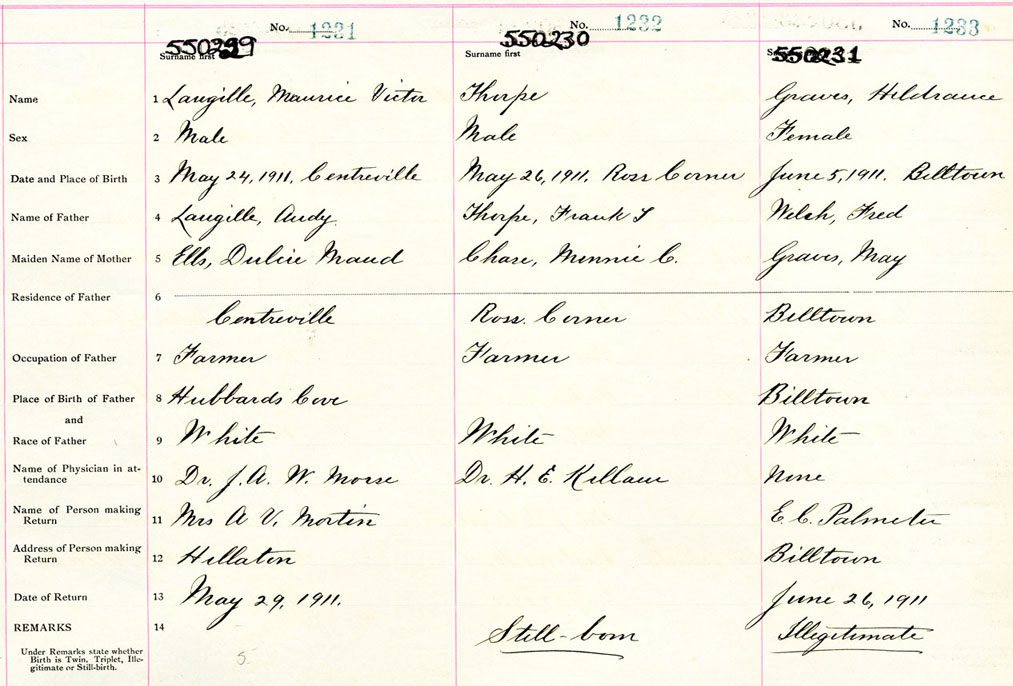 No. 1231 No. 1232 No. 1233
550229 550230 550231
Surname first Surname first Surname first
Name 1 Langille, Maurice Victor Thorpe Graves, Hildrance
Sex 2 Male Male Female
Date and Place of Birth 3 May 24, 1911. Centreville May 26, 1911. Ross Corner June 5, 1911. Billtown
Name of Father 4 Langille, Andy. Thorpe, Frank Welsh, Fred
Maiden Name of Mother 5 Ells, Dulcie Maud Chase, Minnie C. Graves, May
Residence of Father 6
Centreville Ross. Corner Billtown
Occupation of Father 7 Farmer Farmer Farmer
Place of Birth of Father 8 Hubbards Cove Billtown
and
Race of Father 9 White White White
Name of Physician in at-
tendance 10 Dr. J. A. W. Morse Dr. H. E. Killam None
Name of Person making
Return 11 Mrs A V. Mortin E. C. Palmeter
Address of Person making
Return 12 Hillaton Billtown
Date of Return 13 May 29, 1911. June 26, 1911
REMARKS 14 Still-born Illegitimate
Under Remarks state whether
Birth is Twin, Triplet, Ille-
gitimate or Still-birth.
5